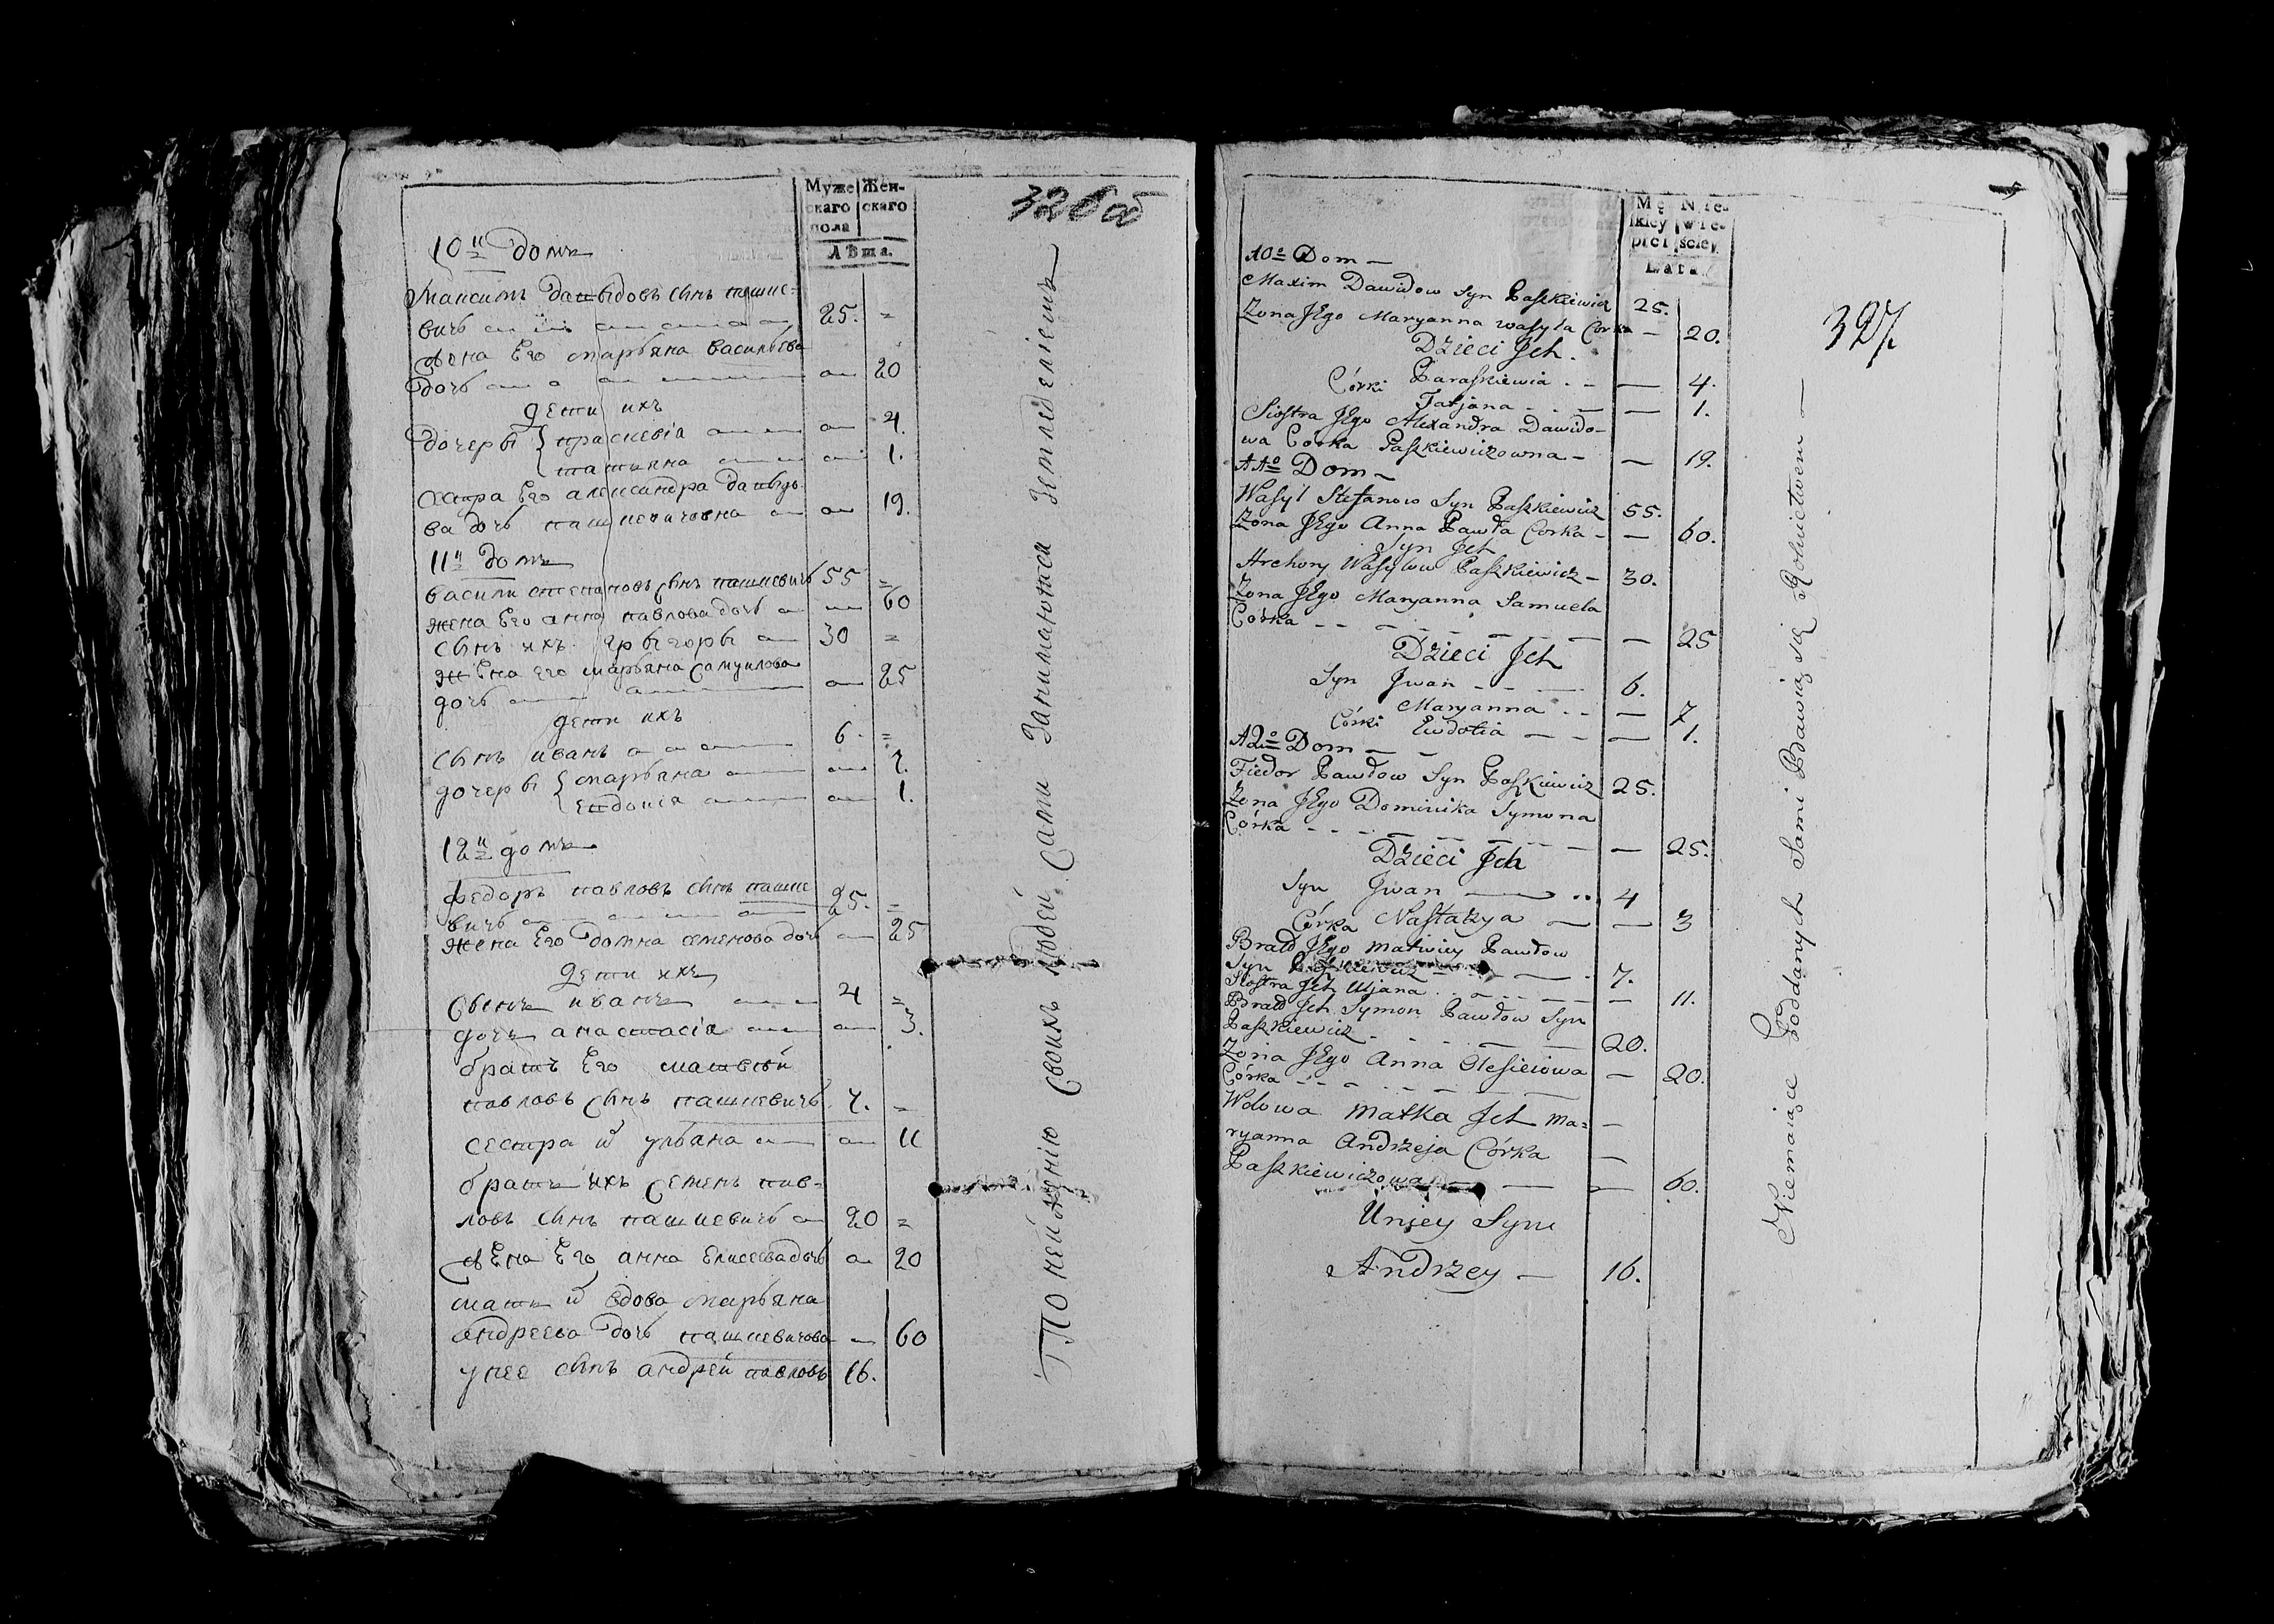 Муже Жен-
скаго скаго
пола
Лѣта.
326 об
10й домъ
Максимъ Давыдовъ сынъ пашке-
вичь 25. =
жена Его марьяна васильева
дочь 20
дети ихъ
дочеры { праскевіа 4.
татьяна 1.
сестра Его александра давыдо-
ва дочь пашкевичовна 19.
11й домъ
василий степановъ сынъ пашкевичь 55 =
жена Его анна павлова дочь 60
сынъ ихъ грыгоры 30 =
жена его марьяна самуилова
дочь 25
дети ихъ
сынъ иванъ 6. =
дочеры { марьяна 7.
евдокіа 1.
12й домъ
федоръ павловъ сынъ пашке
вичь 25. =
жена Его домна семенова дочь 25
дети ихъ
сынъ иванъ 4 =
дочь анастасіа 3.
братъ Его матвѣй
павловъ сынъ пашкевичь 7. =
сестра й ульана 11
братъ ихъ семенъ пав-
ловъ сынъ пашкевичь 20 =
жена Его анна Елисеева дочь 20
мать й вдова марьяна
андреева дочь пашкевичова 60
у нее сынъ андрей павловъ 16.
По неймѣнію своихъ людей сами занимаются земледеліемъ
Mę Nie-
skiey wie-
płci ściey
Lata.
327.
10o Dom —
Maxim Dawidow Syn Paszkiewicz 25.
Zona JEgo Maryanna wasyla Corka — 20.
Dzieci Jch.
Córki Paraskiewia . - — 4.
Tatjana - . - — — 1.
Siostra JEgo Alexandra Dawido-
wa Córka Paszkiewiczowna - — 19.
11o Dom —
Wasyl Stefanow Syn Paszkiewicz 55.
Zona JEgo Anna Pawła Corka - — 60.
Syn Jch
Arehory Wasylow Paszkiewicz - 30.
Zona JEgo Maryanna Samuela
Córka - - - - — — 25
Dzieci Jch
Syn Jwan - - — 6.
Maryanna . - — 7
Córki Ewdotia — - — 1.
12o Dom — —
Fiedor Pawłow Syn Paszkiewicz 25.
Zona JEgo Dominika Symona
Córka - - - - — — 25.
Dzieci Jch
Syn Jwan — .. 4
Córka Nastazya — — 3
Bratd JEgo Matwiey Pawłow
Syn Paszkiewicz - — . 7.
Siostra Jch Uljana . - - — — 11.
Bratd Jch Symon Pawłow Syn
Paszkiewicz - . - - — — 20.
Zona JEgo Anna Olesieiowa — 20.
Córka - - - . - —
Wdowa Matka Jch Ma= —
ryanna Andrzeja Córka —
Paszkiewiczowa — — — 60.
Uniey Syn
Andrzey — 16.
Niemaiące Poddanych Sami Bawią się Rolnictwem —